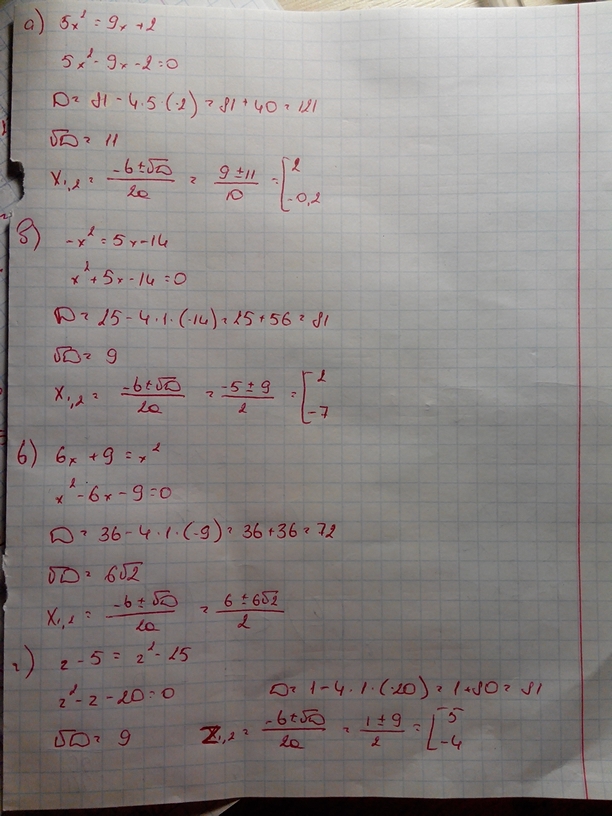 а) 5x² = 9x + 2
5x² - 9x - 2 = 0
D = 81 - 4·5·(-2) = 81 + 40 = 121
√D = 11
x₁,₂ = (-b ± √D)/2a = (9 ± 11)/10 = [2 -0,2
б) -x² = 5x - 14
x² + 5x - 14 = 0
D = 25 - 4·1·(-14) = 25 + 56 = 81
√D = 9
x₁,₂ = (-b ± √D)/2a = (-5 ± 9)/2 = [2 -7
в) 6x + 9 = x²
x² - 6x - 9 = 0
D = 36 - 4·1·(-9) = 36 + 36 = 72
√D = 6√2
x₁,₂ = (-b ± √D)/2a = (6 ± 6√2)/2
г) z - 5 = z² - 25
z² - z - 20 = 0 D = 1 - 4·1·(-20) = 1 + 80 = 81
√D = 9 z₁,₂ = (-b ± √D)/2a = (1 ± 9)/2 = [5 -4